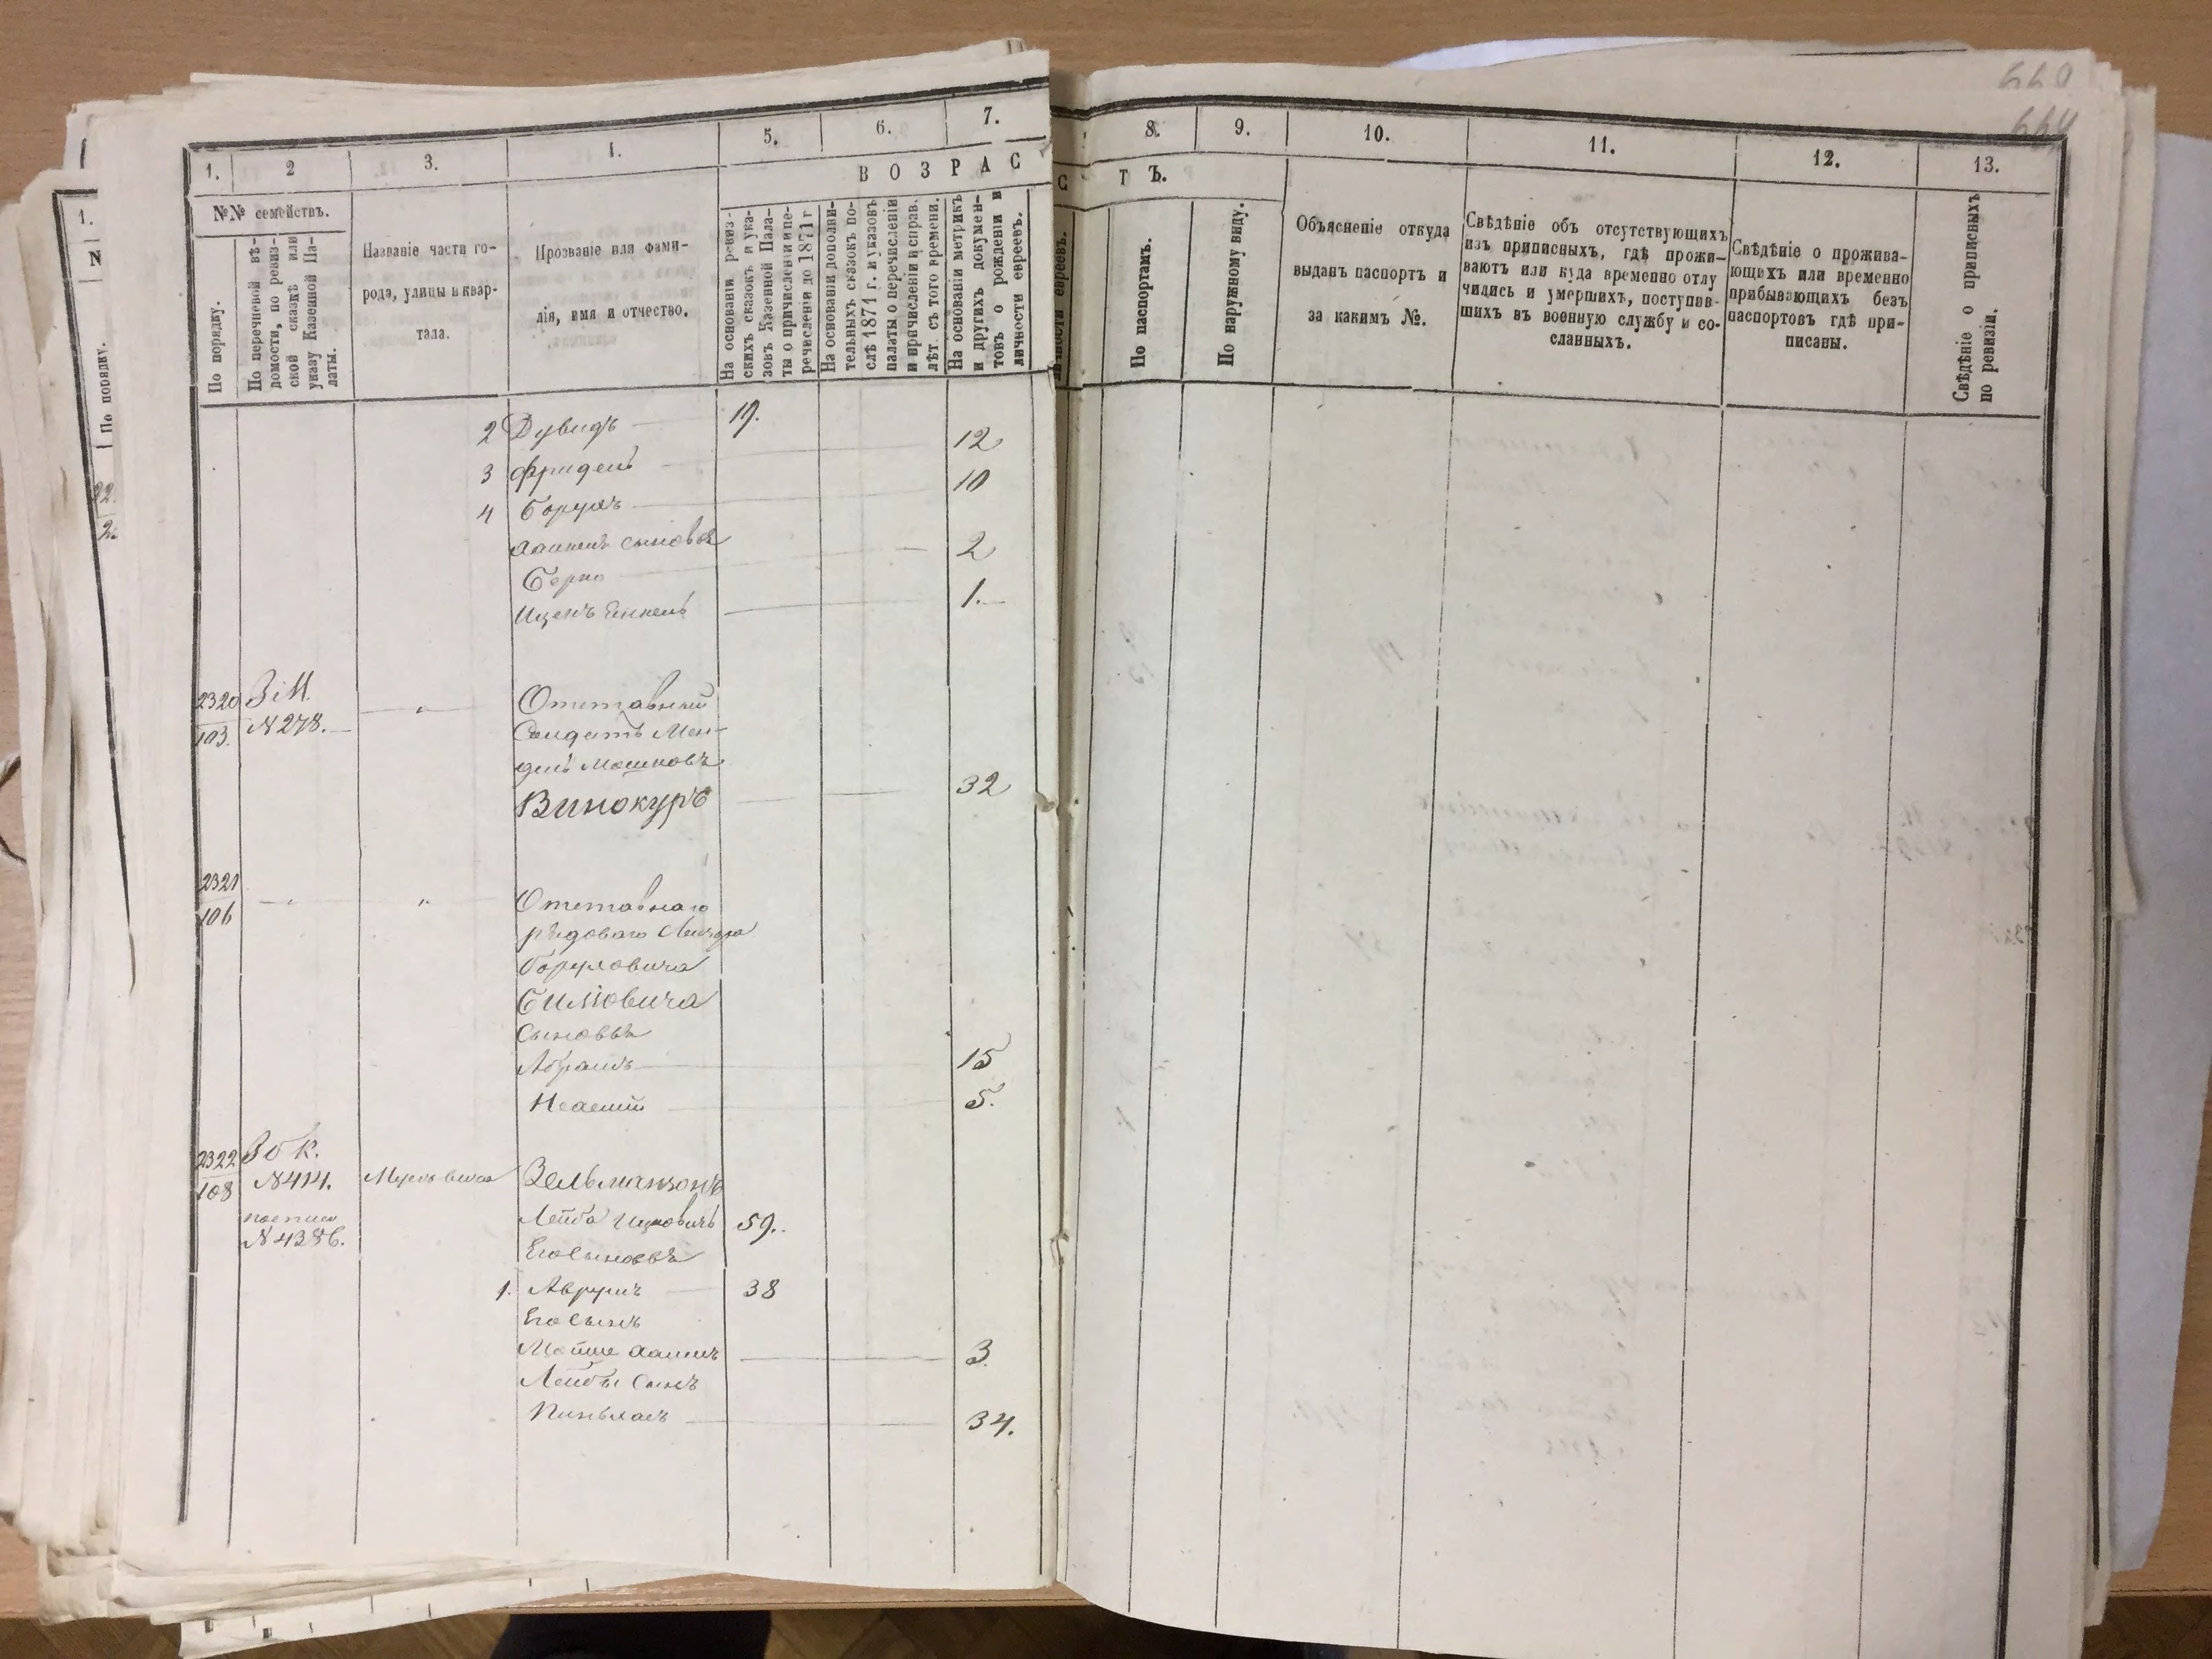 660
664
1. 2 3. 4. 5. 6. 7. 8. 9. 10. 11. 12. 13.
№№ семействъ.
В О З Р А С
Т Ъ.
По порядку.
По перечневой вѣ-
домости, по ревиз-
ской сказкѣ или
указу Казенной Па-
латы.
Названіе части го-
рода, улицы и квар-
тала.
Прозваніе или фами-
лія, имя и отчество.
На основаніи ревиз-
скихъ сказокъ и ука-
зовъ Казенной Пала-
ты о причисленіи и пе-
речисленіи до 1871 г
На основаніи дополни-
тельныхъ сказокъ по-
слѣ 1871 г. и указовъ
палаты о перечисленіи
и причисленіи и справ.
лѣт. съ того времени.
На основаніи метрикъ
и другихъ докумен-
товъ о рожденіи и
личности евреевъ.
По паспортамъ.
По наружному виду.
Объясненіе откуда
выданъ паспортъ и
за какимъ №.
Свѣдѣніе объ отсутствующихъ
изъ приписныхъ, гдѣ прожи-
ваютъ или куда временно отлу
чились и умершихъ, поступив-
шихъ въ военную службу и со-
сланныхъ.
Свѣдѣніе о прожива-
ющихъ или временно
прибывающихъ безъ
паспортовъ гдѣ при-
писаны.
Свѣдѣніе о приписныхъ
по ревизіи.
1.
N
По порядку.
2 Дувидъ 19.
12
3 Фридель
10
4 Борухъ
сыновья
2
Берко
Ицекъ Янкель 1.
2320 З і М.
103. N 278.
Отставный
Солдатъ Мен-
дель Мошковъ
Винокуръ 32
2321
106
Отставнаго
рядоваго
Боруховича
Билиовича
Сыновья
Абрамъ 15
5.
2322
108
N 414.
N 4386.
Зельманзонъ
Лейба Ицковичъ 59.
Его сыновья
1. Аврумъ 38
Его сынъ
Мойше 3.
Лейбы сынъ
Пинхасъ 34.